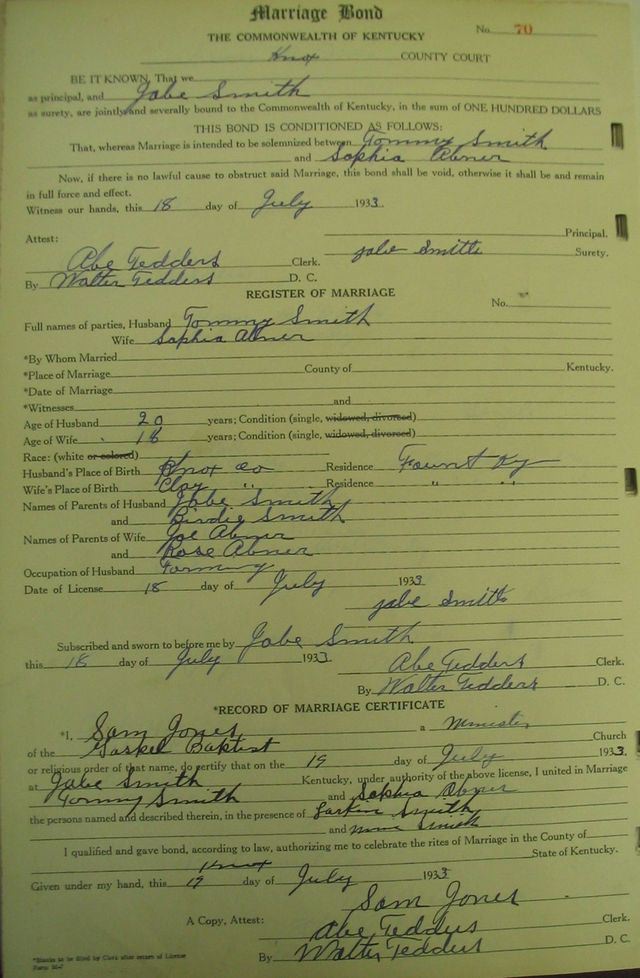 Marriage Bond
No. 70
THE COMMONWEALTH OF KENTUCKY
Knox COUNTY COURT
BE IT KNOWN, That we
as principal, and Jabe Smith
as surety, are jointly and severally bound to the Commonwealth of Kentucky, in the sum of ONE HUNDRED DOLLARS
THIS BOND IS CONDITIONED AS FOLLOWS:
That, whereas Marriage is intended to be solemnized between Tommy Smith
and Sophia Abner
Now, if there is no lawful cause to obstruct said Marriage, this bond shall be void, otherwise it shall be and remain
in full force and effect.
Witness our hands, this 18 day of July 1933
Principal.
Attest: Jabe Smith Surety.
Abe Tedders Clerk.
By Walter Tedders D. C.
REGISTER OF MARRIAGE
No.
Full names of parties, Husband Tommy Smith
Wife Sophia Abner
*By Whom Married
*Place of Marriage County of Kentucky.
*Date of Marriage
*Witnesses and
Age of Husband 20 years; Condition (single, widowed, divorced)
Age of Wife 18 years; Condition (single, widowed, divorced)
Race: (white or colored)
Husband's Place of Birth Knox Co Residence Fount Ky
Wife's Place of Birth Clay " Residence " "
Names of Parents of Husband Jabe Smith
and Birdie Smith
Names of Parents of Wife Joe Abner
and Rose Abner
Occupation of Husband Farming
Date of License 18 day of July 1933
Jabe Smith
Subscribed and sworn to before me by Jabe Smith
this 18 day of July 1933
Abe Tedders Clerk.
By Walter Tedders D. C.
*RECORD OF MARRIAGE CERTIFICATE
*I, Sam Jones a Minister
of the Baptist Church
or religious order of that name, do certify that on the 19 day of July 1933.
at Jabe Smith Kentucky, under authority of the above license, I united in Marriage
Tommy Smith and Sophia Abner
the persons named and described therein, in the presence of Larkin Smith
and Smith
I qualified and gave bond, according to law, authorizing me to celebrate the rites of Marriage in the County of
Knox State of Kentucky.
Given under my hand, this 19 day of July 1933
Sam Jones
A Copy, Attest: Abe Tedders Clerk.
By Walter Tedders D. C.
*Blanks to be filled by Clerk after return of License